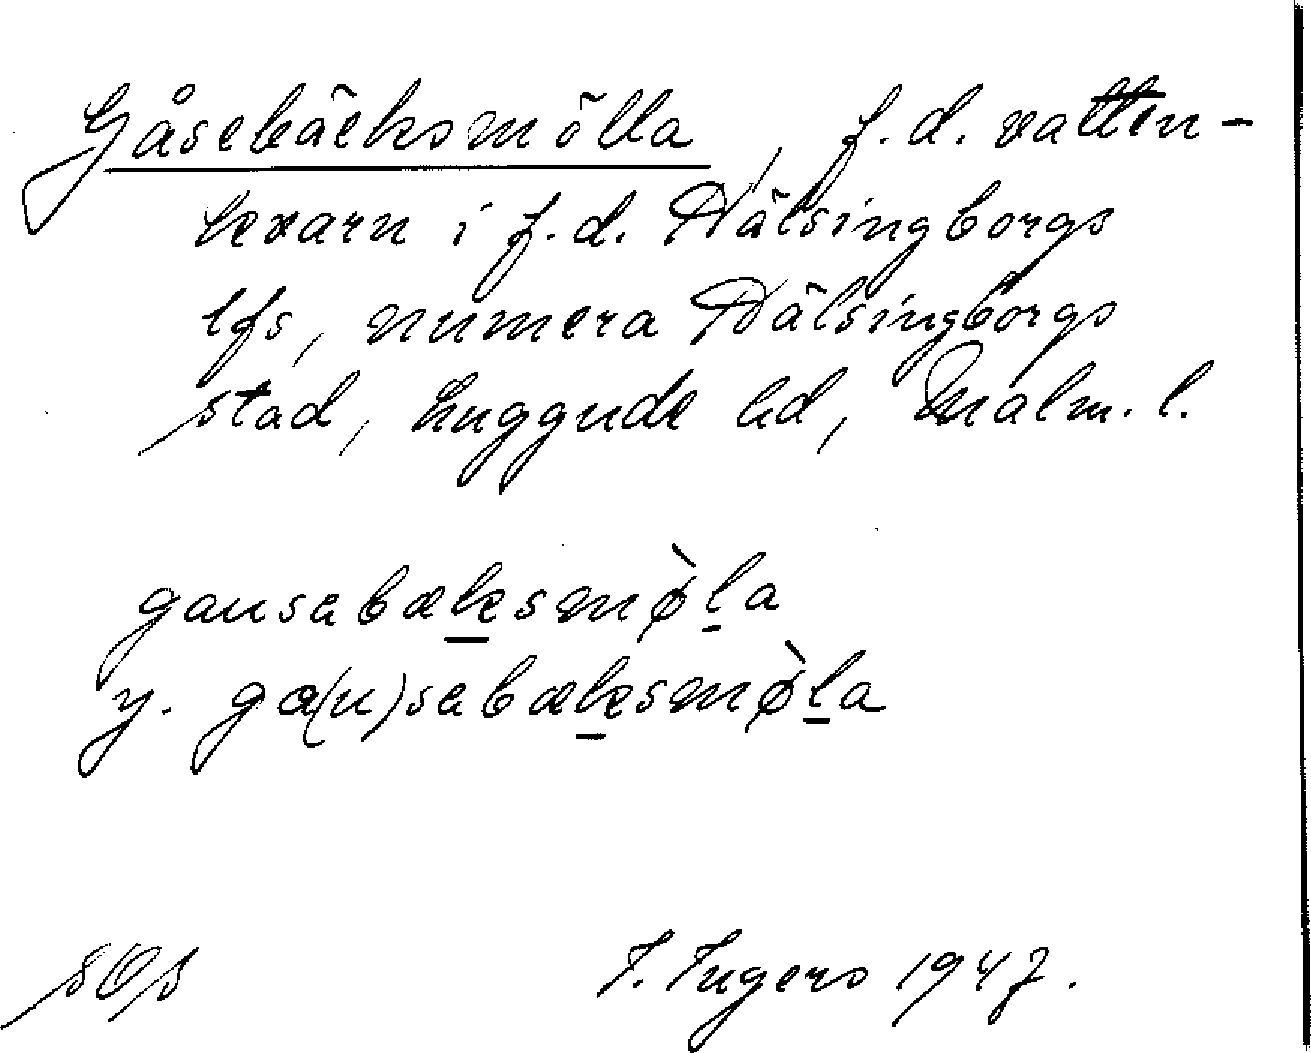 Gåsebäcksmölla, f.d. vatten-
kvarn i f.d. Hälsingborgs
lfs, numera Hälsingborgs
stad, Luggude hd, Malm. l.
gausabæksmø̀la
y. ga(u)sabæksmø̀la
I. Ingers 1947.